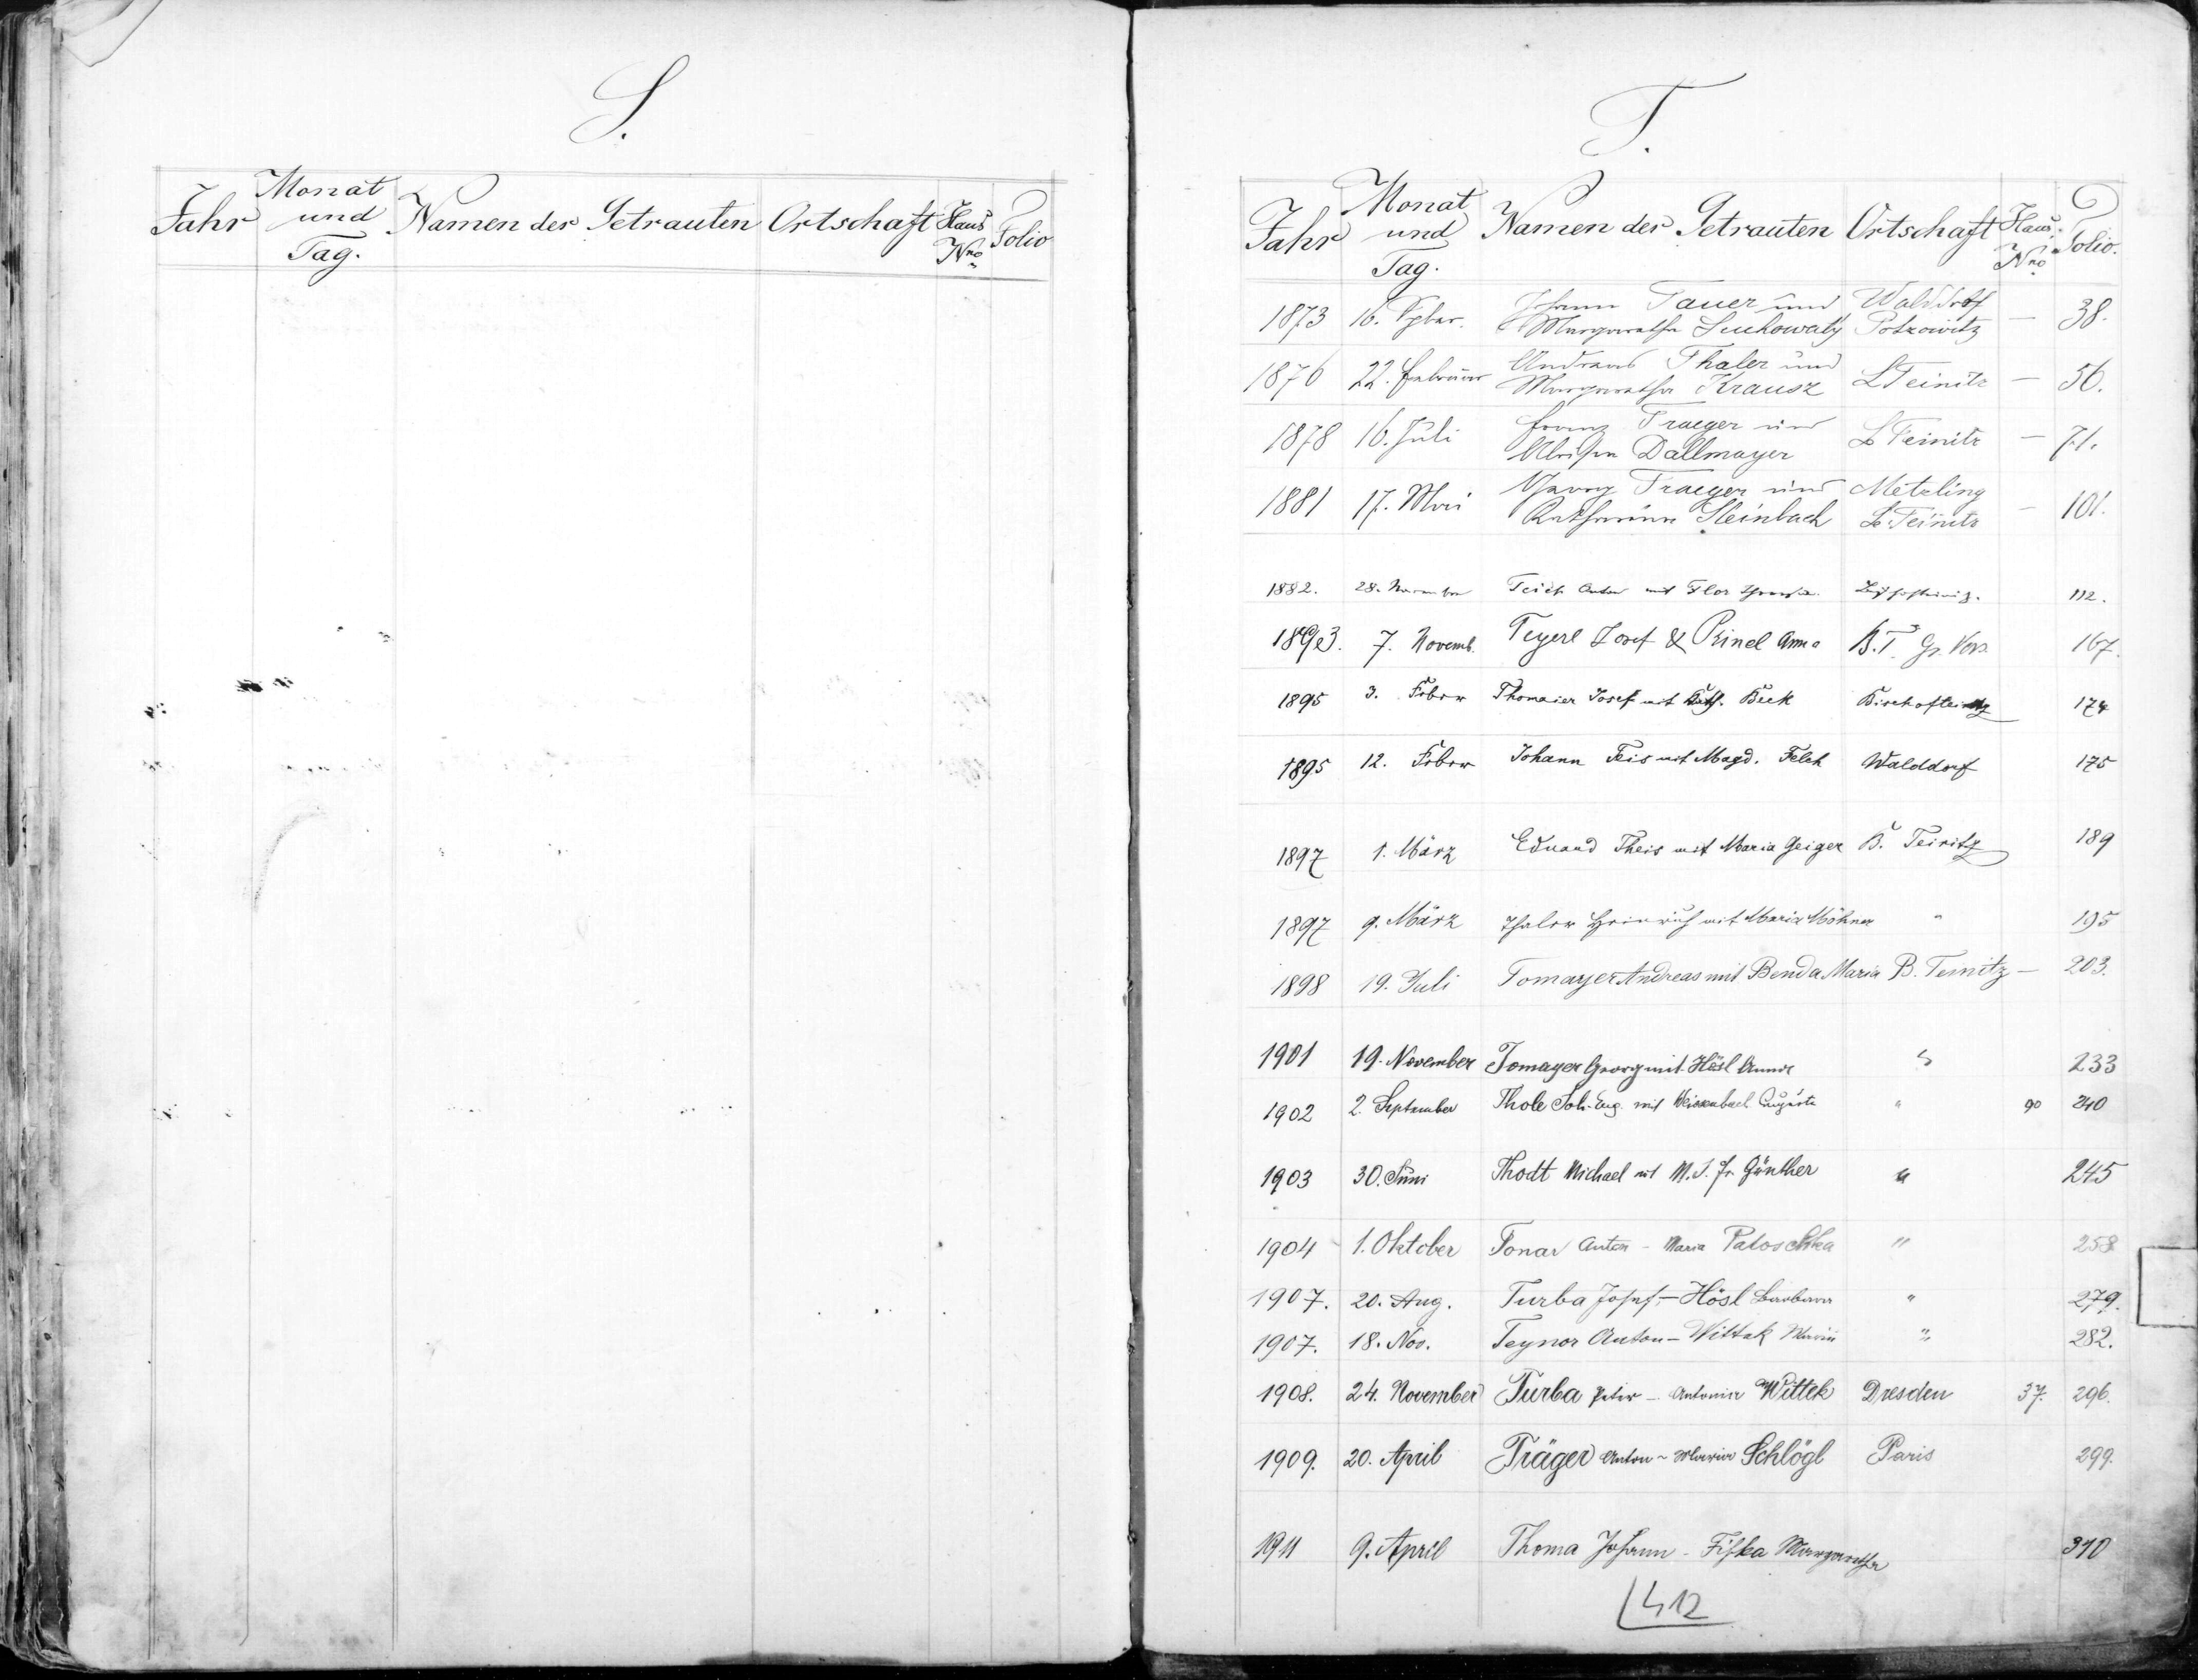 S.
Jahr Monat und Tag. Namen der Getrauten Ortschaft Haus Nro Folio
T.
Jahr Monat und Tag. Namen der Getrauten Ortschaft Haus Nro Folio.
1873 16. Johann Tauer und Walddorf — 38.
Margaretha Suchowaty Potzowitz
1876 22. Februar Andreas Thaler und L Teinitz — 56.
Margaretha Krausz
1878 16. Juli Franz Traeger und B Teinitz — 71.
Dallmayer
1881 17. Mai Georg Traeger und Metzling — 101.
Katharina Steinbach B. Teinitz
1882. 28. November Teich Anton mit Flor 112.
1893. 7. Novemb. Teyerl Josef & Prinel Anna B.T. Gr. Vor. 167.
1895 3. Febr Thomaier Josef mit Kath. Beck Bischofteinitz 174
1895 12. Febr Johann Teis mit Magd. Felch Walddorf 175
1897 1. März Eduard Theis mit Maria Geiger B. Teinitz 189
1897 9. März Thaler Heinrich mit Maria Möhner " 195
1898 19. Juli Tomayer Andreas mit Benda Maria B. Teinitz — 203.
1901 19. November Tomayer Georg mit Hösl Anna " 233
1902 2. September Thole Joh. Eug. mit Weissenbach Auguste " 90 240
1903 30. Juni Thodt Michael mit M. J. Fr. Günther " 245
1904 1. Oktober Tonar Anton - Maria Patoschka " 258
1907. 20. Aug. Turba Josef - Hösl Barbara " 279.
1907. 18. Nov. Teynor Anton - Wittek Maria " 282.
1908. 24. November Turba Peter - Antonia Wittek Dresden 37. 296.
1909. 20. April Träger Anton - Maria Schlögl Paris 299.
1911 9. April Thoma Johann - Fiska Margaretha 310
412